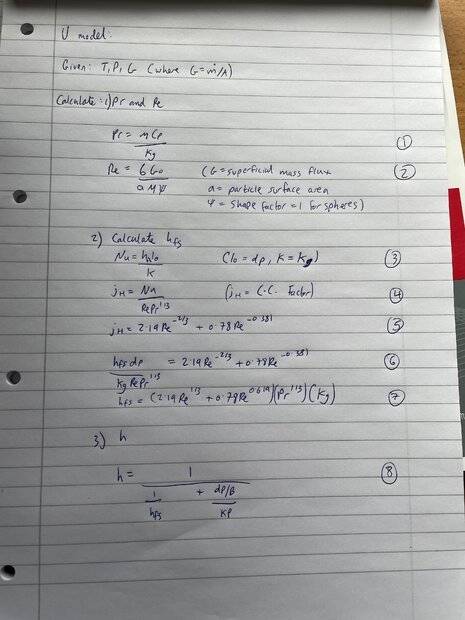 U model:
Given: T, P, G (where G = ṁ/A)
Calculate: 1) Pr and Re
Pr = μCp / kg (1)
Re = 6G0 / aμψ (G = superficial mass flux (2)
a = particle surface area
ψ = shape factor = 1 for spheres)
2) Calculate hfs
Nu = hl0 / K (l0 = dp, K = Kg) (3)
jH = Nu / RePr^1/3 (jH = C.C. Factor) (4)
jH = 2.19Re^-2/3 + 0.78Re^-0.381 (5)
hfs dp / kg RePr^1/3 = 2.19Re^-2/3 + 0.78Re^-0.381 (6)
hfs = (2.19Re^1/3 + 0.78Re^0.619)(Pr^1/3)(Kg) (7)
3) h
h = 1 / (1/hfs + (dp/β)/kp) (8)